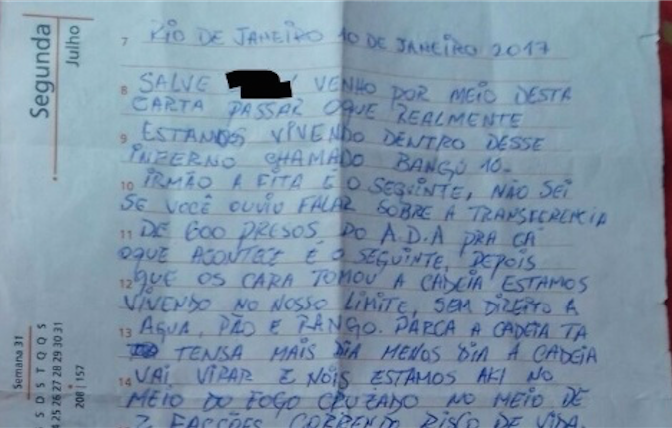 Segunda
Julho
Semana 31
S D S T Q Q S
24 25 26 27 28 29 30 31
208 | 157
7 RIO DE JANEIRO 10 DE JANEIRO 2017
8 SALVE VENHO POR MEIO DESTA
CARTA PASSAR OQUE REALMENTE
9 ESTAMOS VIVENDO DENTRO DESSE
INFERNO CHAMADO BANGÚ 10.
10 IRMÃO A FITA É O SEGUINTE, NÃO SEI
SE VOCÊ OUVIU FALAR SOBRE A TRANSFERENCIA
11 DE 600 PRESOS DO A.D.A PRA CÁ
OQUE ACONTECE É O SEGUINTE, DEPOIS
12 QUE OS CARA TOMOU A CADEIA ESTAMOS
VIVENDO NO NOSSO LIMITE, SEM DIREITO A
13 AGUA, PÃO E RANGO. PARÇA A CADEIA TA
TENSA MAIS DIA MENOS DIA A CADEIA
14 VAI VIRAR E NÓIS ESTAMOS AKI NO
MEIO DO FOGO CRUZADO NO MEIO DE
2 FACÇÕES CORRENDO RISCO DE VIDA.